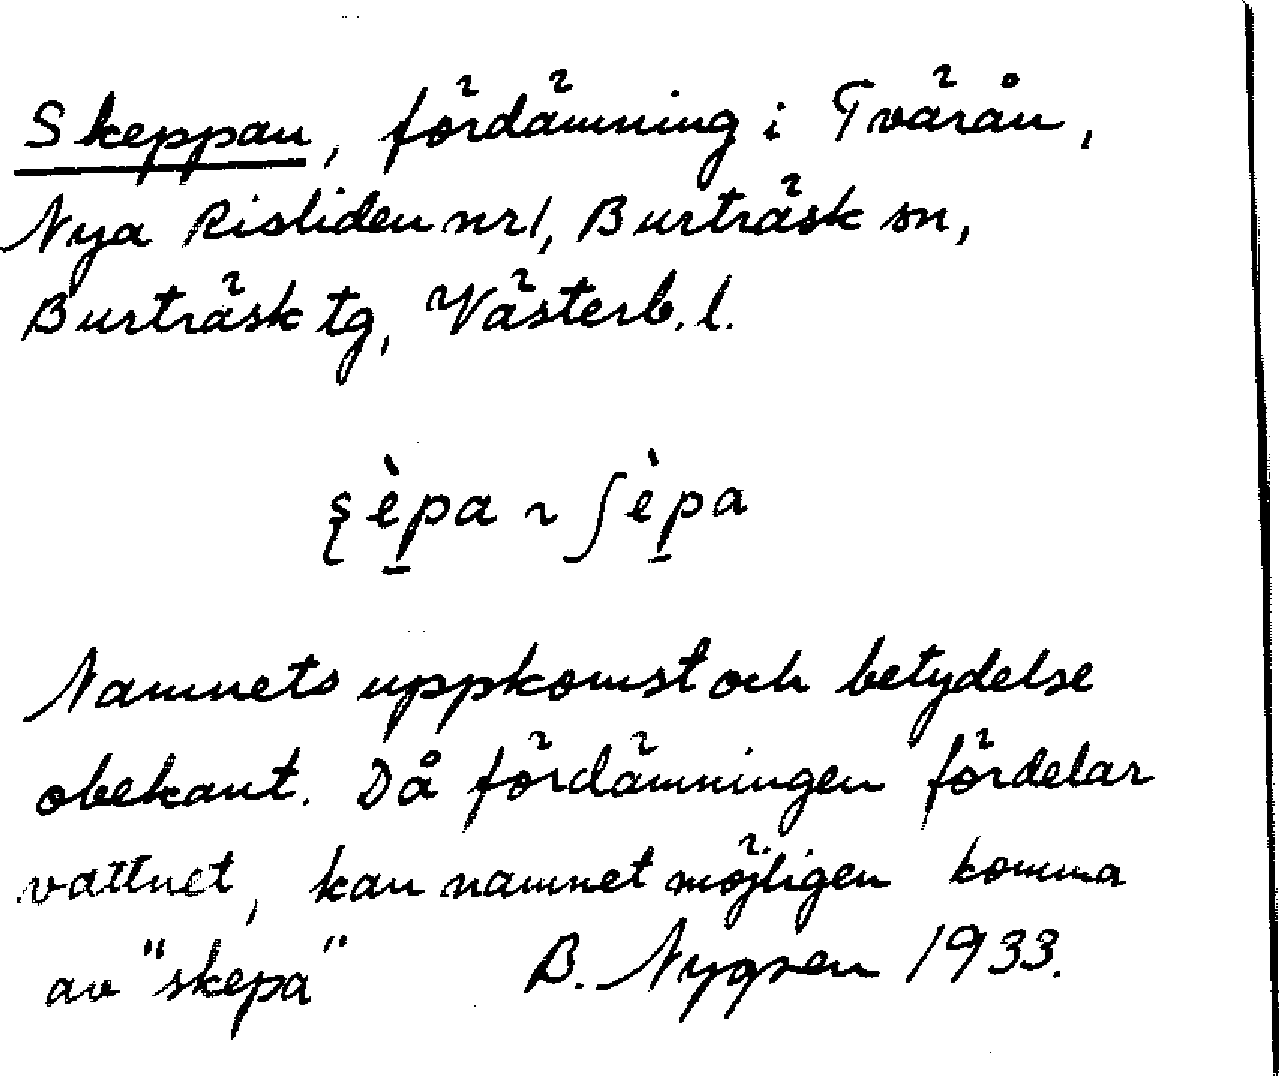 Skeppan, fördämning i Tvärån,
Nya Risliden nr 1, Burträsk sn,
Burträsk tg, Västerb. l.
ʂèp̱a ~ ʃèp̱a
Namnets uppkomst och betydelse
obekant. Då fördämningen fördelar
vattnet, kan namnet möjligen komma
av "skepa" B. Nygren 1933.